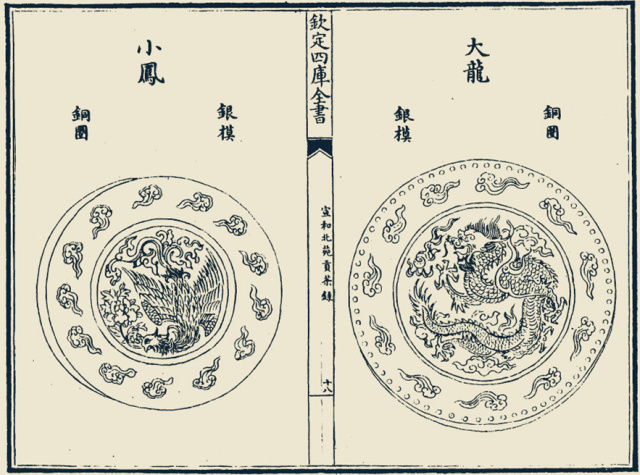 大龍
銅圈
銀模
欽定四庫全書
宣和北苑貢茶録
十八
小鳳
銀模
銅圈